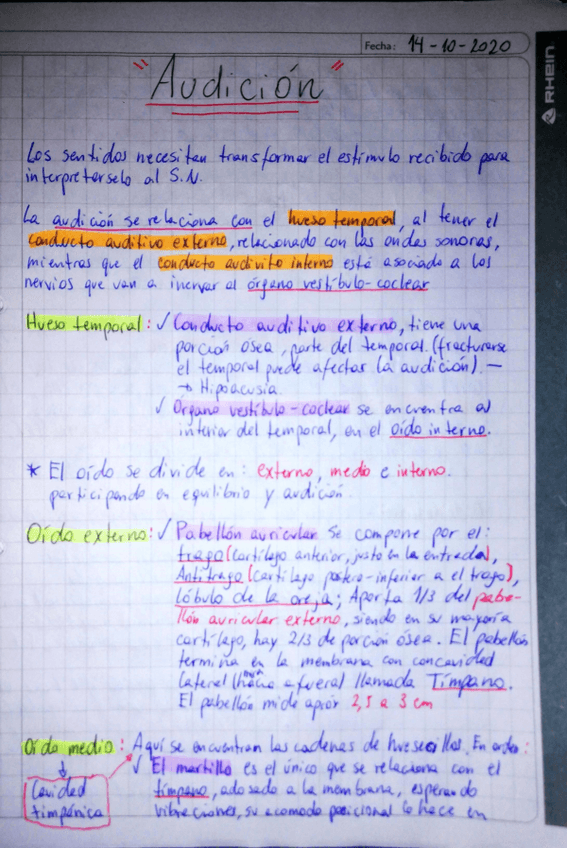 Fecha: 14-10-2020
RHEIN
"Audición"
Los sentidos necesitan transformar el estímulo recibido para
interpretarselo al S.N.
La audición se relaciona con el hueso temporal, al tener el
conducto auditivo externo, relacionado con las ondas sonoras,
mientras que el conducto audivito interno está asociado a los
nervios que van a inervar al órgano vestíbulo-coclear
Hueso temporal: ✓ Conducto auditivo externo, tiene una
porción ósea, parte del temporal. (fracturarse
el temporal puede afectar la audición). —
→ Hipoacusia.
✓ Órgano vestíbulo-coclear se encuentra al
interior del temporal, en el oído interno.
* El oído se divide en: externo, medio e interno.
participando en equilibrio y audición
Oído externo: ✓ Pabellón auricular se compone por el:
trago (cartílago anterior, justo en la entrada),
Antitrago (cartílago postero-inferior a el trago),
lóbulo de la oreja; Aporta 1/3 del pabe-
llón auricular externo, siendo en su mayoría
cartílago, hay 2/3 de porción ósea. El pabellón
termina en la membrana con concavidad
lateral (hacia afuera) llamada Tímpano.
El pabellón mide aprox 2,5 a 3 cm
Oído medio: Aquí se encuentran las cadenas de huesecillos. En orden:
Cavidad
timpánica
✓ El martillo es el único que se relaciona con el
tímpano, adosado a la membrana, esperando
vibraciones, su acomodo posicional lo hace en